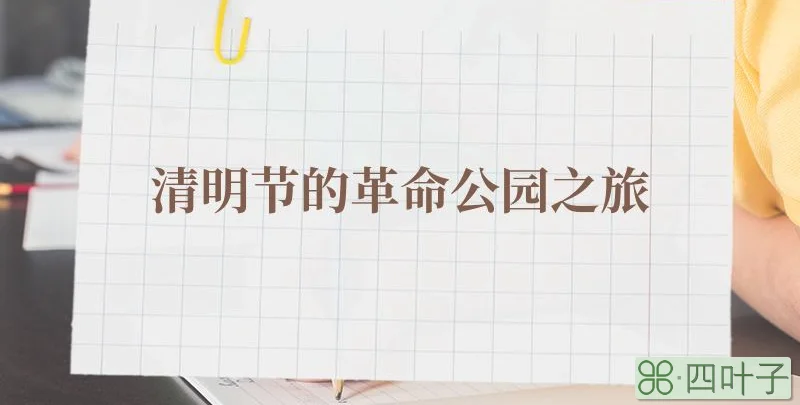 清明节的革命公园之旅
四叶子